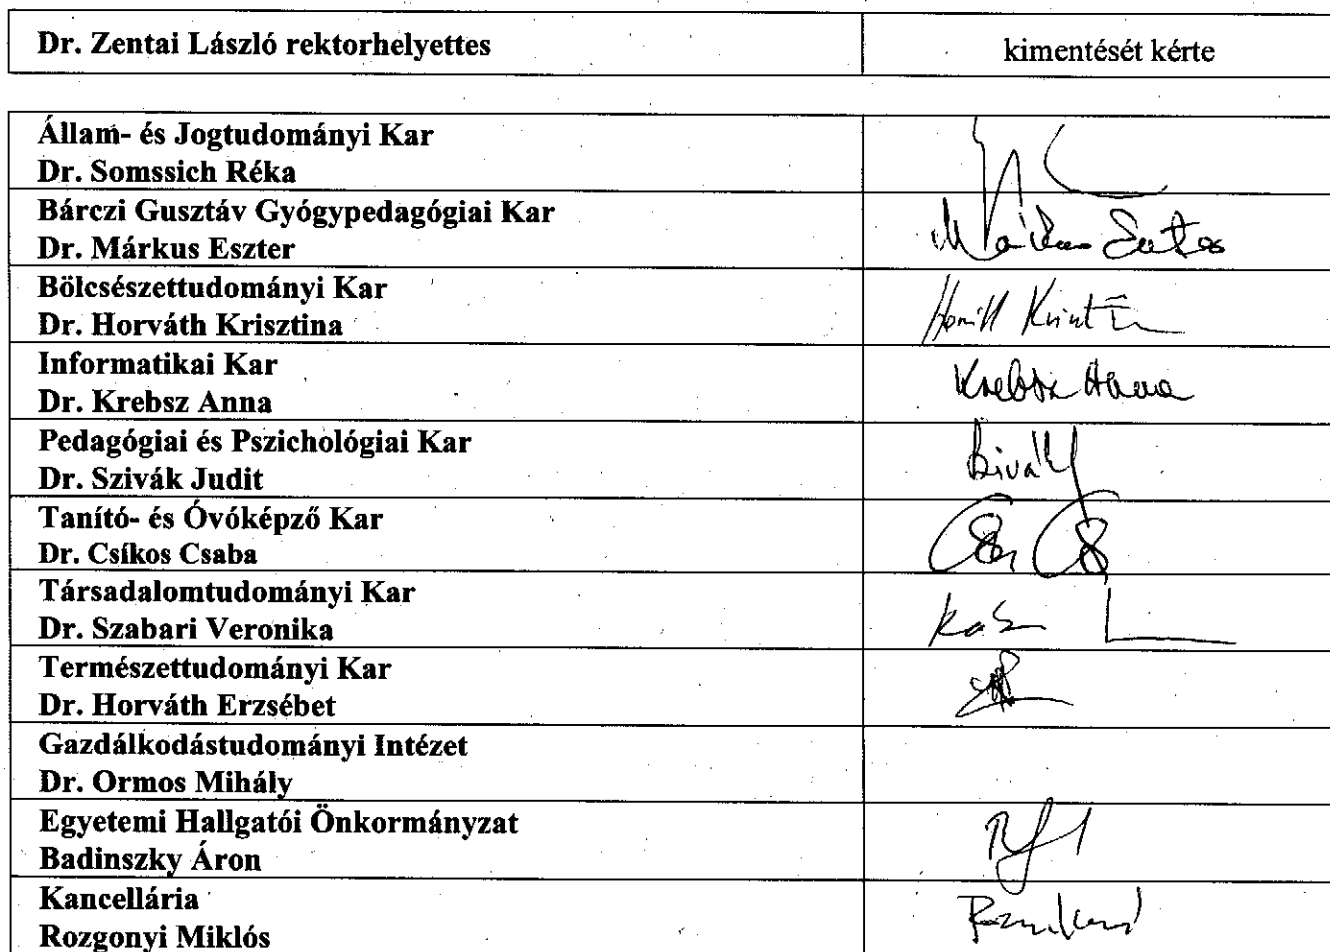 Dr. Zentai László rektorhelyettes
kimentését kérte
Állam- és Jogtudományi Kar
Dr. Somssich Réka
Bárczi Gusztáv Gyógypedagógiai Kar
Dr. Márkus Eszter
Bölcsészettudományi Kar
Dr. Horváth Krisztina
Informatikai Kar
Dr. Krebsz Anna
Krebsz Anna
Pedagógiai és Pszichológiai Kar
Dr. Szivák Judit
Tanító- és Óvóképző Kar
Dr. Csíkos Csaba
Társadalomtudományi Kar
Dr. Szabari Veronika
Természettudományi Kar
Dr. Horváth Erzsébet
Gazdálkodástudományi Intézet
Dr. Ormos Mihály
Egyetemi Hallgatói Önkormányzat
Badinszky Áron
Kancellária
Rozgonyi Miklós